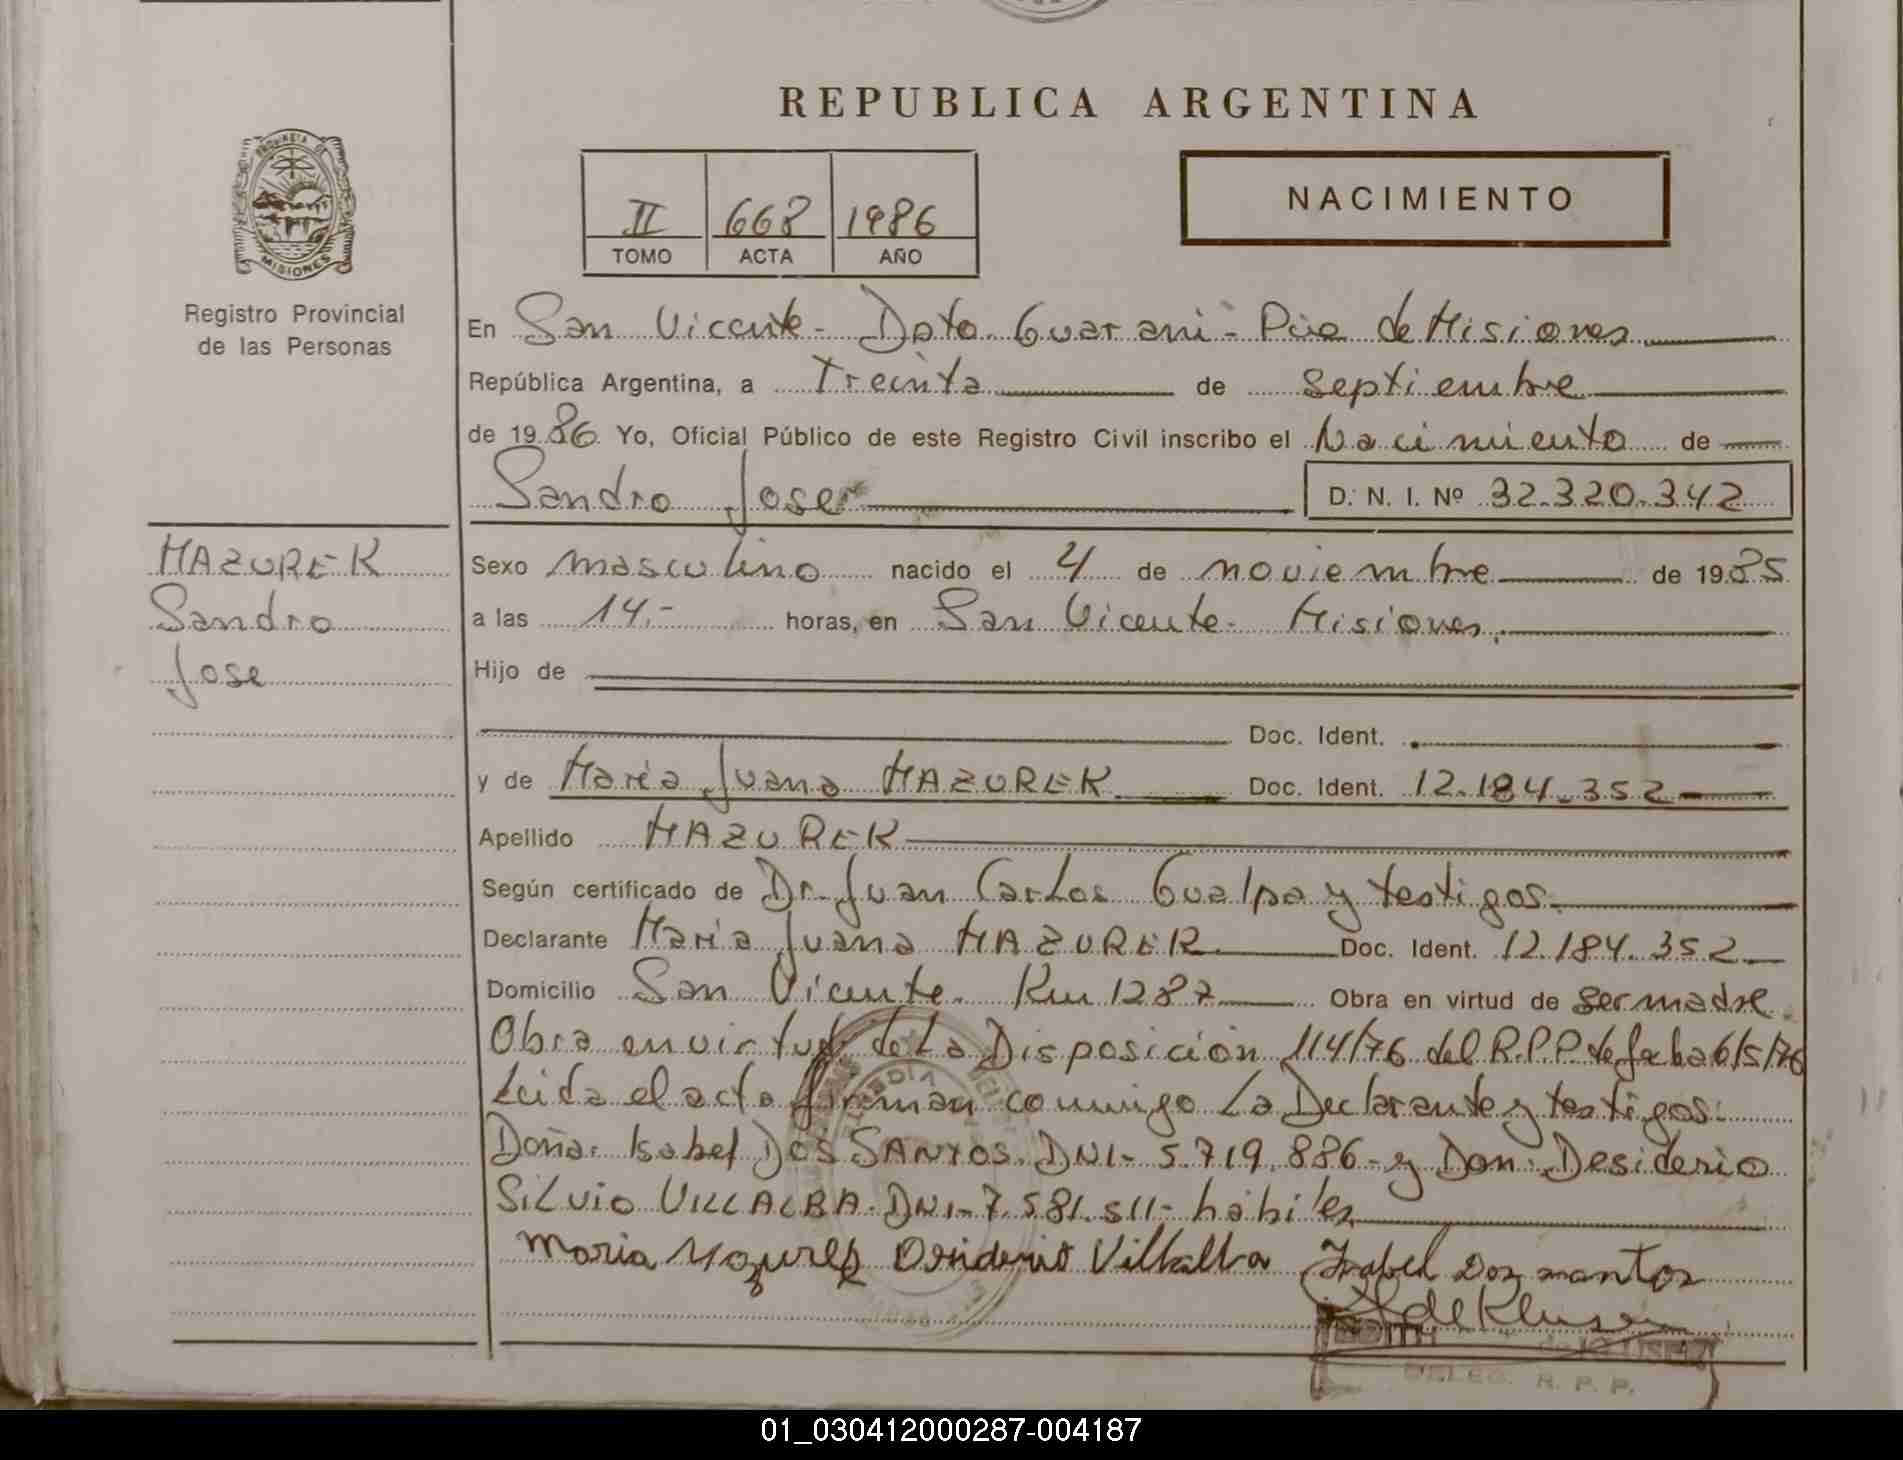 REPUBLICA ARGENTINA
PROVINCIA DE
MISIONES
Registro Provincial
de las Personas
II 668 1986
TOMO ACTA AÑO
NACIMIENTO
En San Vicente - Dpto. Guarani - Pcia de Misiones
República Argentina, a Treinta de septiembre
de 1986 Yo, Oficial Público de este Registro Civil inscribo el Nacimiento de
Sandro Jose D. N. I. Nº 32.320.342
MAZUREK
Sandro
Jose
Sexo masculino nacido el 4 de noviembre de 1985
a las 14.- horas, en San Vicente - Misiones.
Hijo de
Doc. Ident.
y de Maria Juana MAZUREK Doc. Ident. 12.184.352
Apellido MAZUREK
Según certificado de Dr. Juan Carlos Gualpa y testigos.
Declarante Maria Juana MAZUREK Doc. Ident. 12.184.352
Domicilio San Vicente. Km 1287 Obra en virtud de ser madre.
Obra en virtud de La Disposición 114/76 del R.P.P. de fecha 6/5/76
Leida el acta firman conmigo La Declarante y testigos:
Doña: Isabel DOS SANTOS. DNI- 5.719.886- y Don: Desiderio
Silvio VILLALBA. DNI- 7.581.511- hábiles
Maria Desiderio Villalba Isabel Dos
DELEG. R. P. P.
01_030412000287-004187